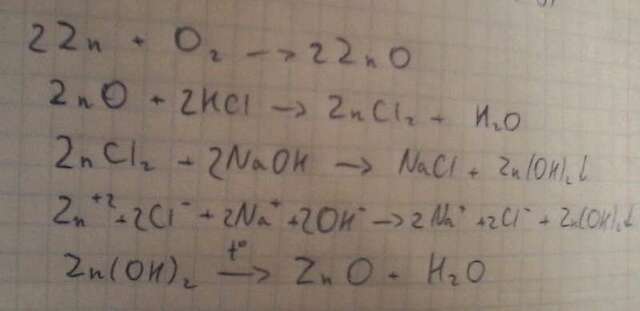 2Zn + O₂ → 2ZnO
ZnO + 2HCl → ZnCl₂ + H₂O
ZnCl₂ + 2NaOH → NaCl + Zn(OH)₂↓
Zn⁺² + 2Cl⁻ + 2Na⁺ + 2OH⁻ → 2Na⁺ + 2Cl⁻ + Zn(OH)₂↓
Zn(OH)₂ t°→ ZnO + H₂O